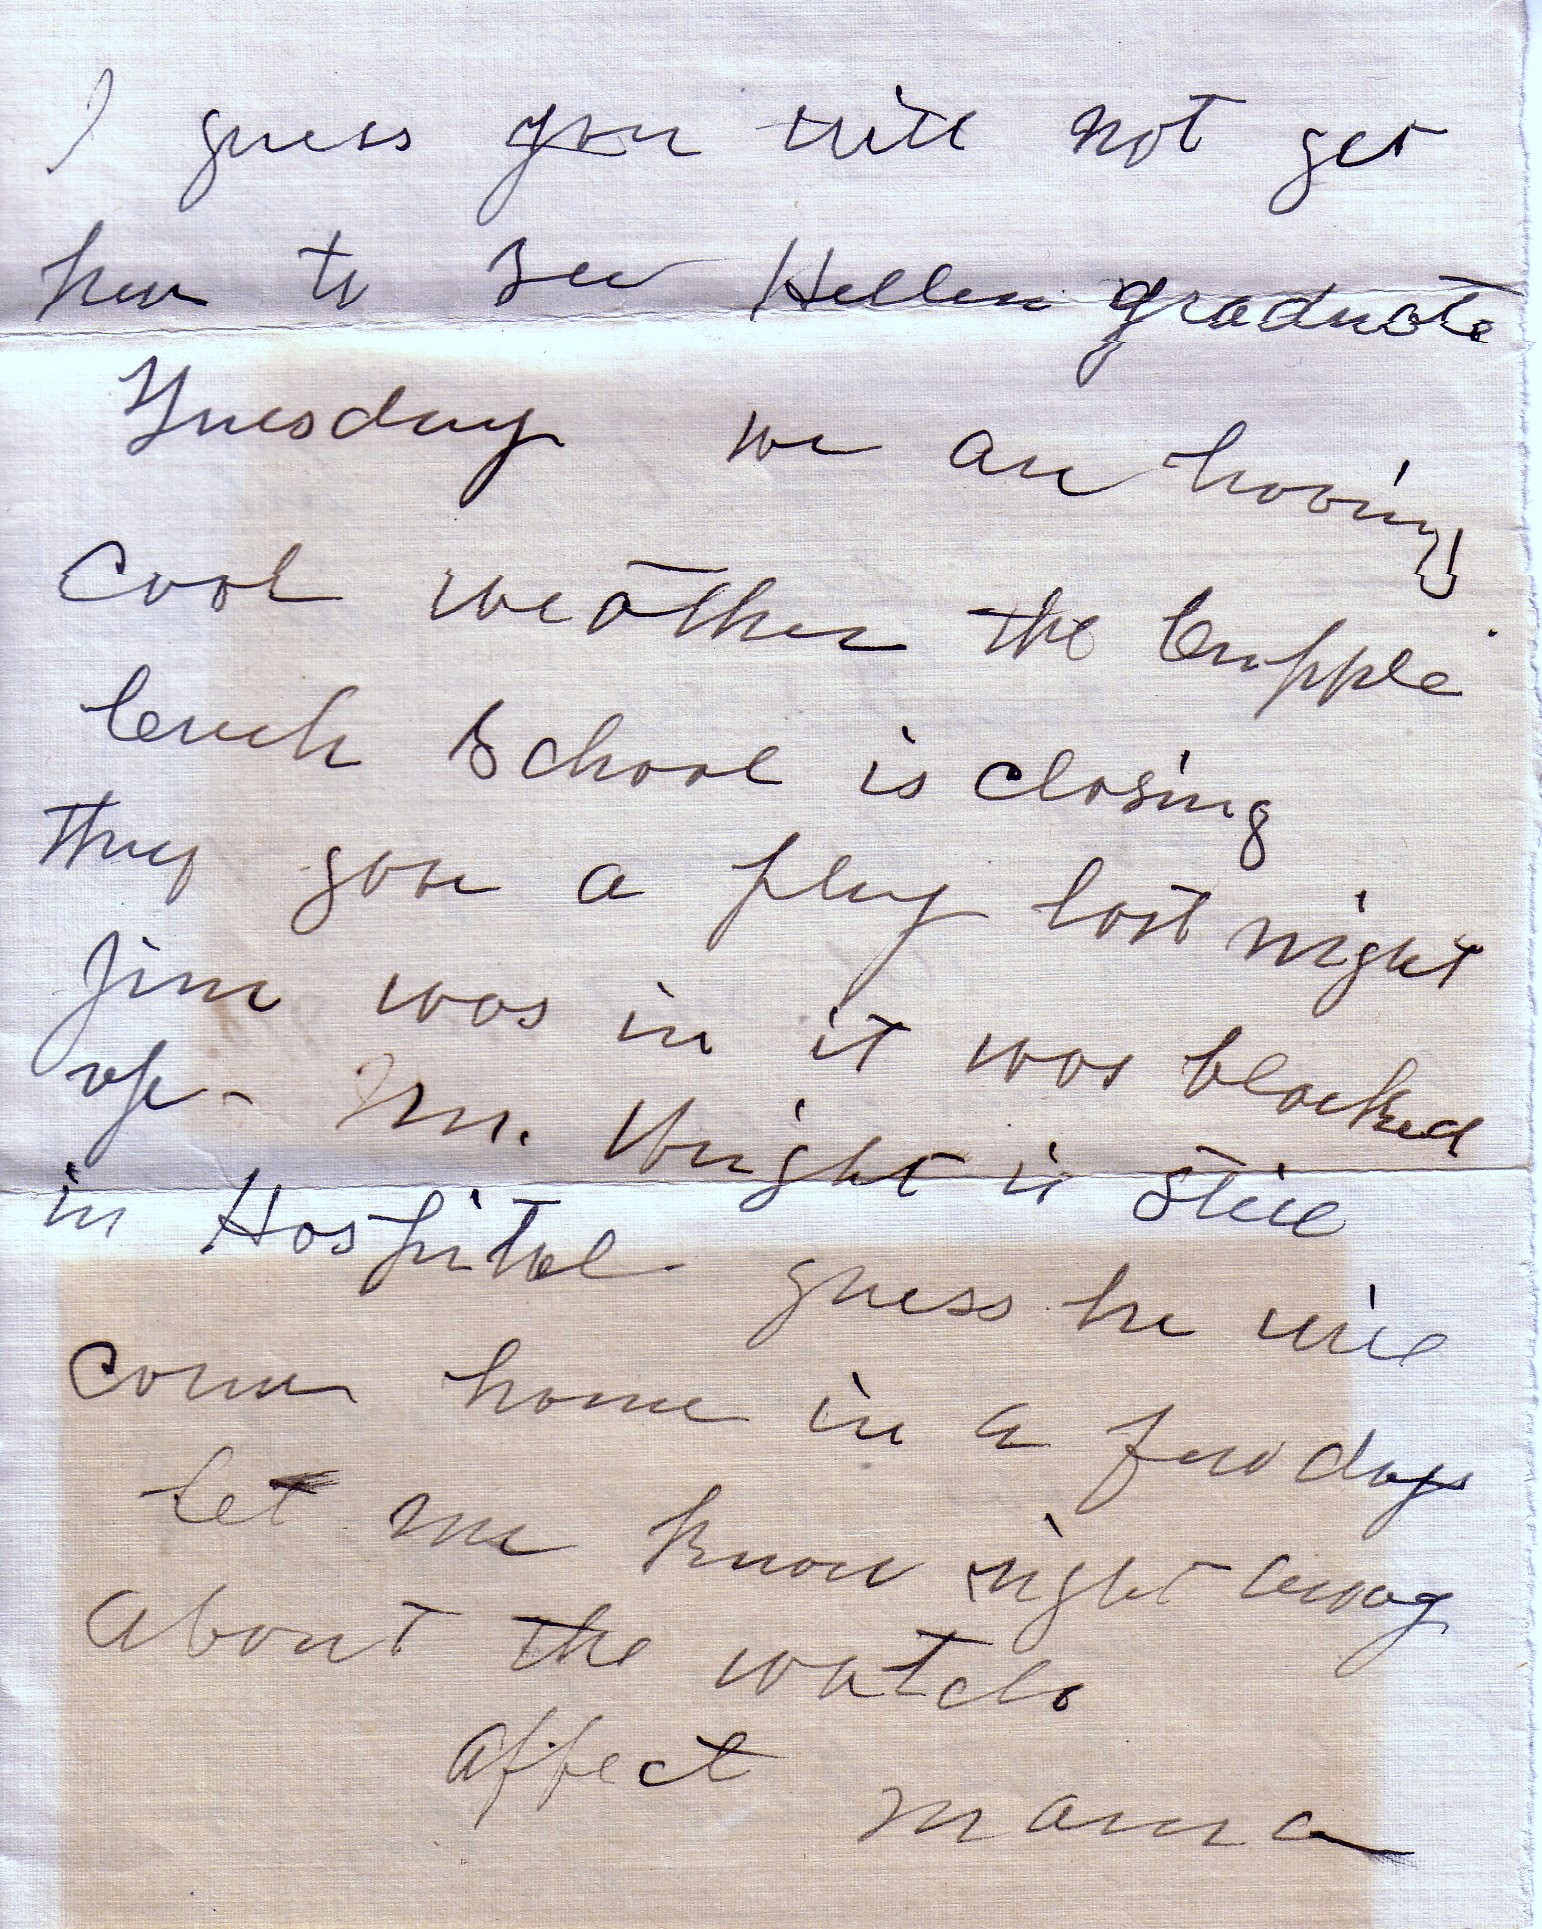 I guess you will not get
here to see Hellen graduate
Tuesday we are having
Cool weather the Cripple
Creek School is closing
they gave a play last night
Jim was in it was blacked
up - Mr. Wright is still
in Hospital guess he will
Come home in a few days
Let me know right away
about the watch
affect
Mama